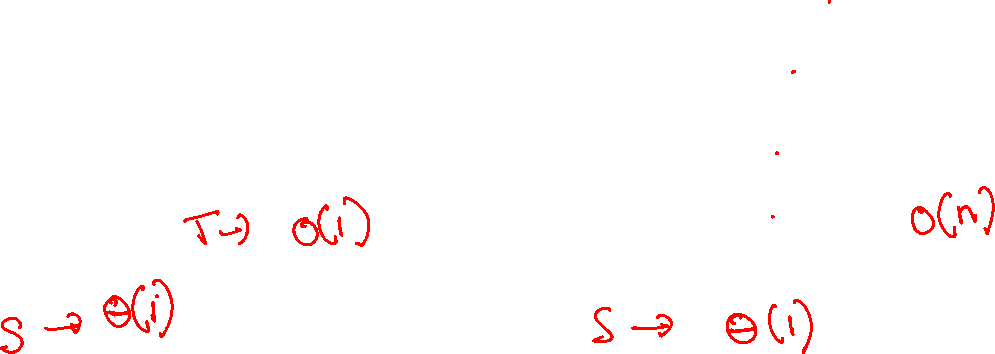 T → O(1) O(n)
S → Θ(i) S → Θ(1)